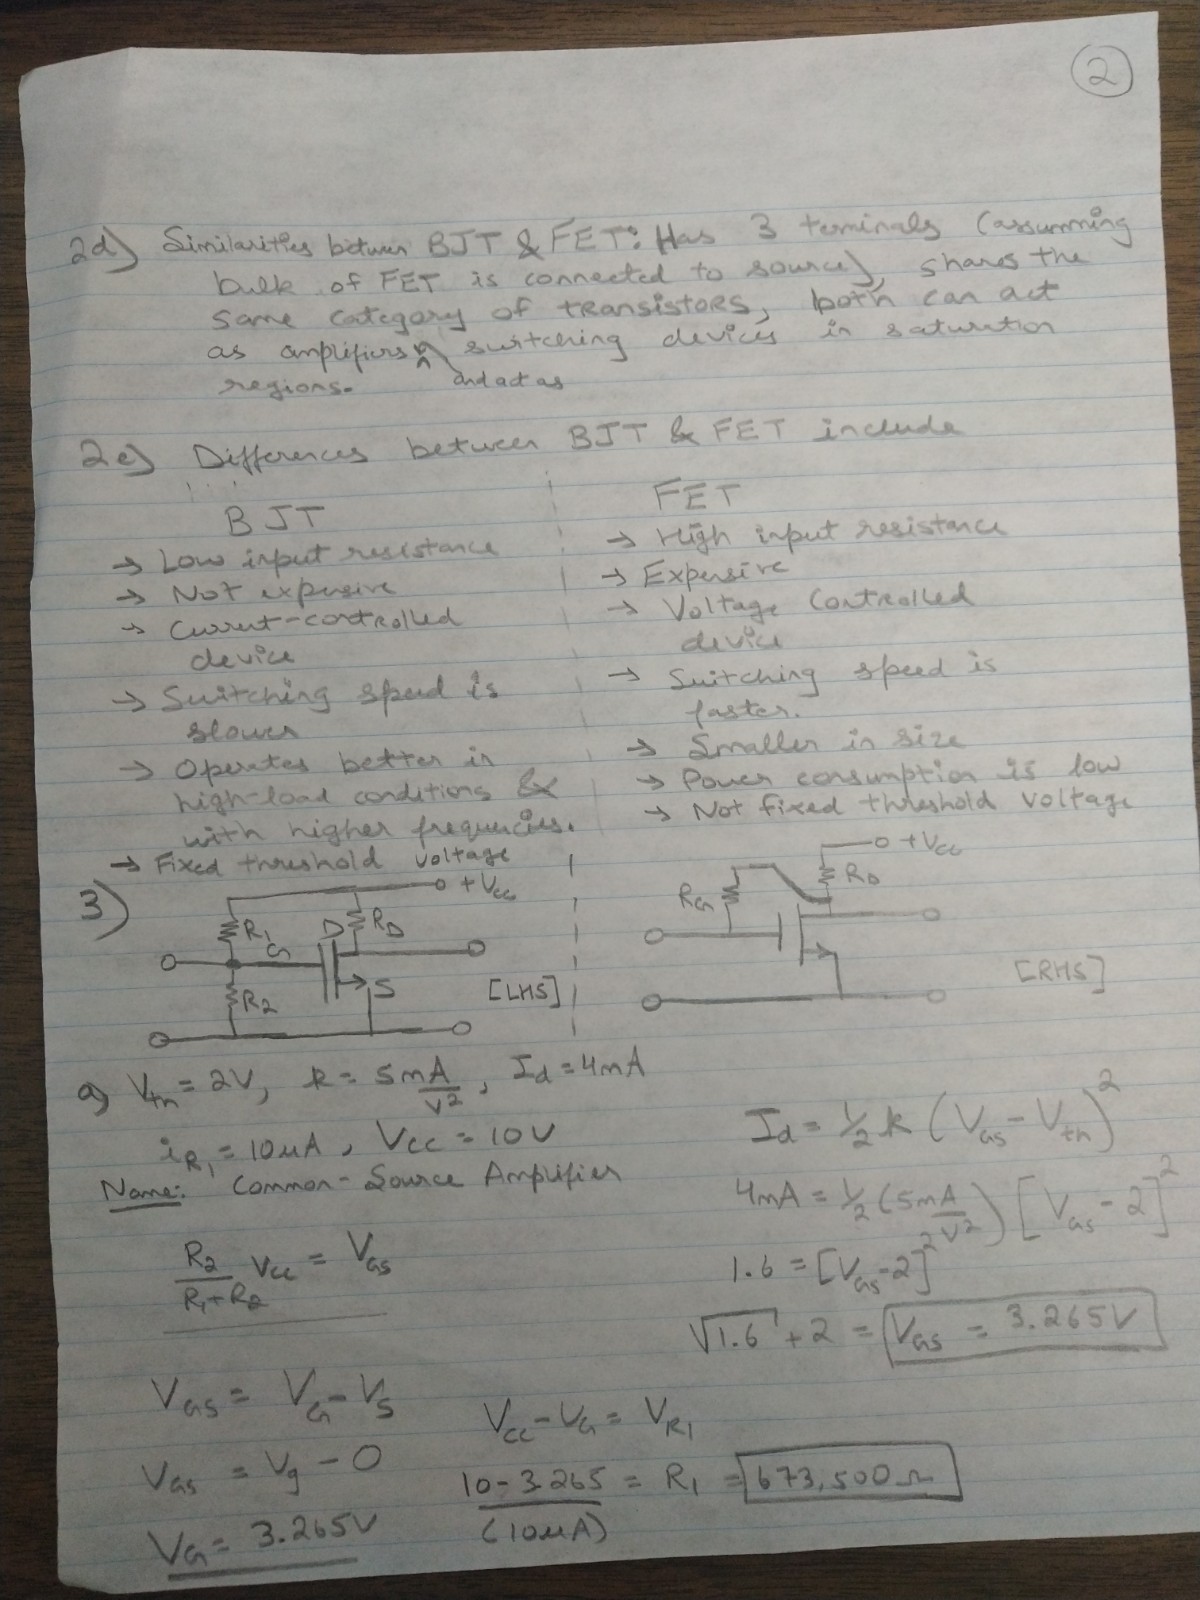 2
2d) Similarities betwen BJT & FET: Has 3 terminals (assumming
bulk of FET is connected to source), shares the
same category of transistors, both can act
as amplifiers & switching devices in saturation
and act as
regions.
2e) Differences between BJT & FET include
BJT
→ Low input resistance
→ Not expensive
→ Current-controlled
device
→ Switching speed is
slower
→ Operates better in
high-load conditions &
with higher frequencies.
→ Fixed threshold voltage
FET
→ High input resistance
→ Expensive
→ Voltage controlled
device
→ Switching speed is
faster.
→ Smaller in size
→ Power consumption is low
→ Not fixed threshold voltage
3)
+Vcc
R1
G
D
RD
S
R2
[LHS]
+Vcc
RG
RD
[RHS]
a) Vtn = 2V, k = 5mA/V², Id = 4mA
iR1 = 10μA, Vcc = 10V
Name: Common-Source Amplifier
R2/(R1+R2) Vcc = VGS
VGS = VG - VS
VGS = Vg - 0
VG = 3.265V
Id = 1/2 k (VGS - Vtn)²
4mA = 1/2 (5mA/V²) [VGS - 2]²
1.6 = [VGS-2]²
√1.6 + 2 = VGS = 3.265V
Vcc - VG = VR1
10-3.265/(10μA) = R1 = 673,500Ω